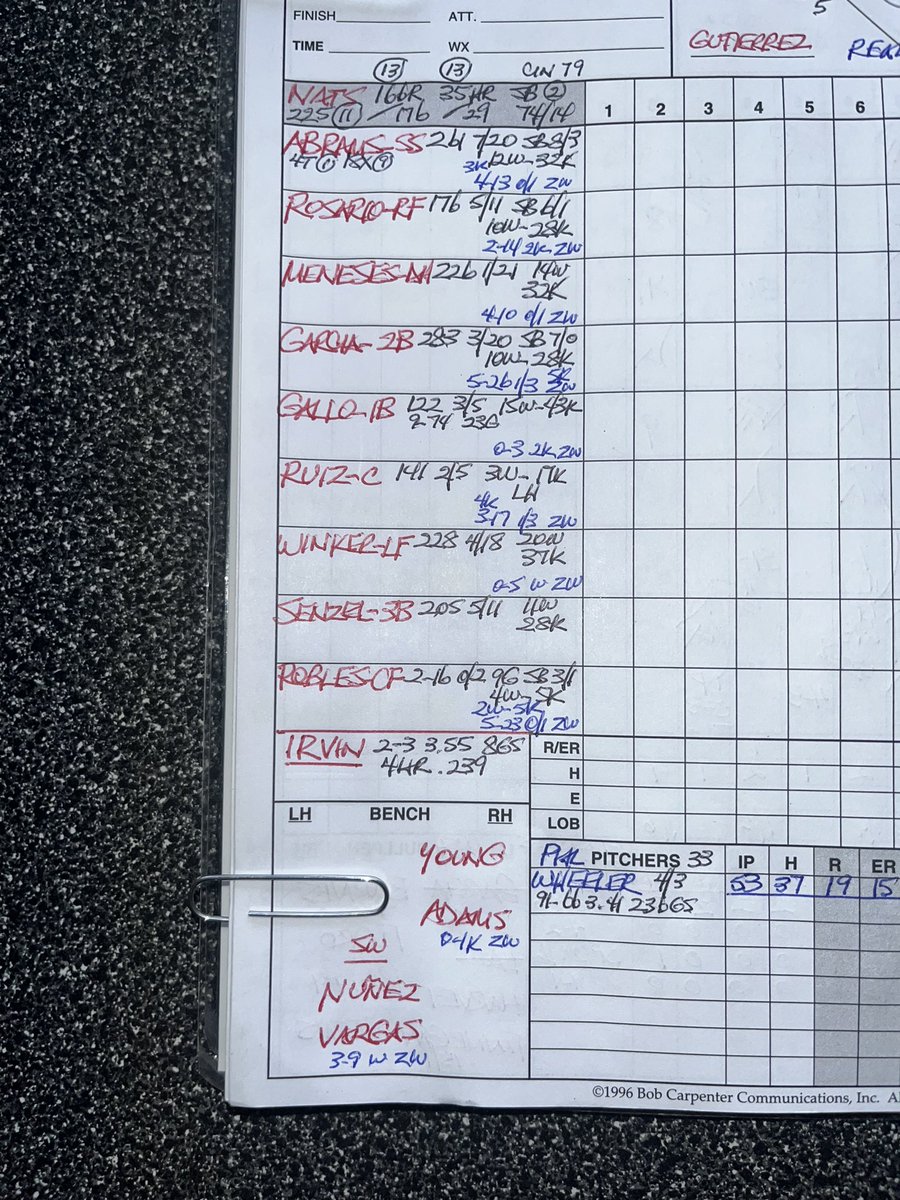 FINISH ATT.
5
TIME WX
GUTIERREZ
13 13 CIN 79
NATS 166R 35HR SB 2
225 11 /176 /29 74/14
1 2 3 4 5 6
ABRAMS-SS 261 7/20 SB8/3
3K 12W-32K
4-13 0/1 ZW
ROSARIO-RF 176 5/11 SB6/1
10W-28K
2-14 2K ZW
MENESES-1H 226 1/21 14W
32K
4-10 0/1 ZW
GARCIA-2B 283 3/20 SB 7/0
10W-28K
5K
5-26 1/3 ZW
GALLO-1B 122 3/5 15W-43K
9-74 23G
0-3 2K ZW
RUIZ-C 141 2/5 3W-17K
LH
4K
3-17 1/3 ZW
WINKER-LF 228 4/18 20W
37K
0-5 W ZW
SENZEL-3B 205 5/11 11W
28K
ROBLES-CF 2-16 0/2 9G SB3/1
4W-5K
2W-5K
5-23 0/1 ZW
IRVIN 2-3 3.55 8GS
4HR .239
R/ER
H
E
LOB
LH BENCH RH
YOUNG
ADAMS
0-1K ZW
SW
NUÑEZ
VARGAS
3-9 W ZW
PHL PITCHERS 33 IP H R ER
WHEELER 4/3 53 37 19 15
91-66 3.41 236GS
©1996 Bob Carpenter Communications, Inc.